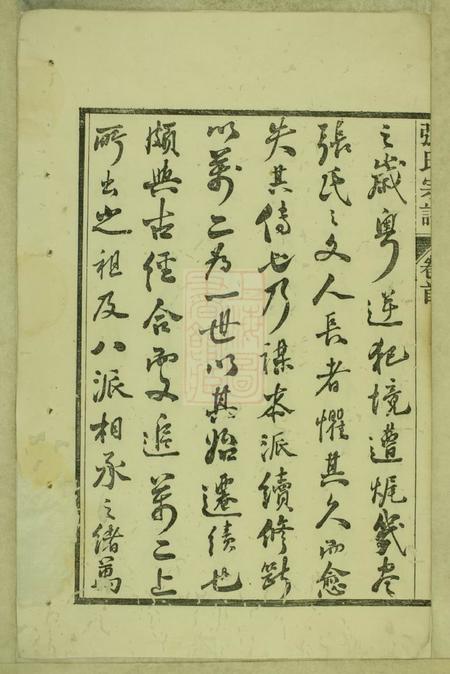 張氏宗譜 卷首
之歲粵逆犯境遭焜幾盡
張氏之文人長者懼其久而愈
失其傳也乃謀本派續修斷
以萬二為一世以其始遷績也
頗與古經合處追萬二上
所出之祖及八派相承之緒萬